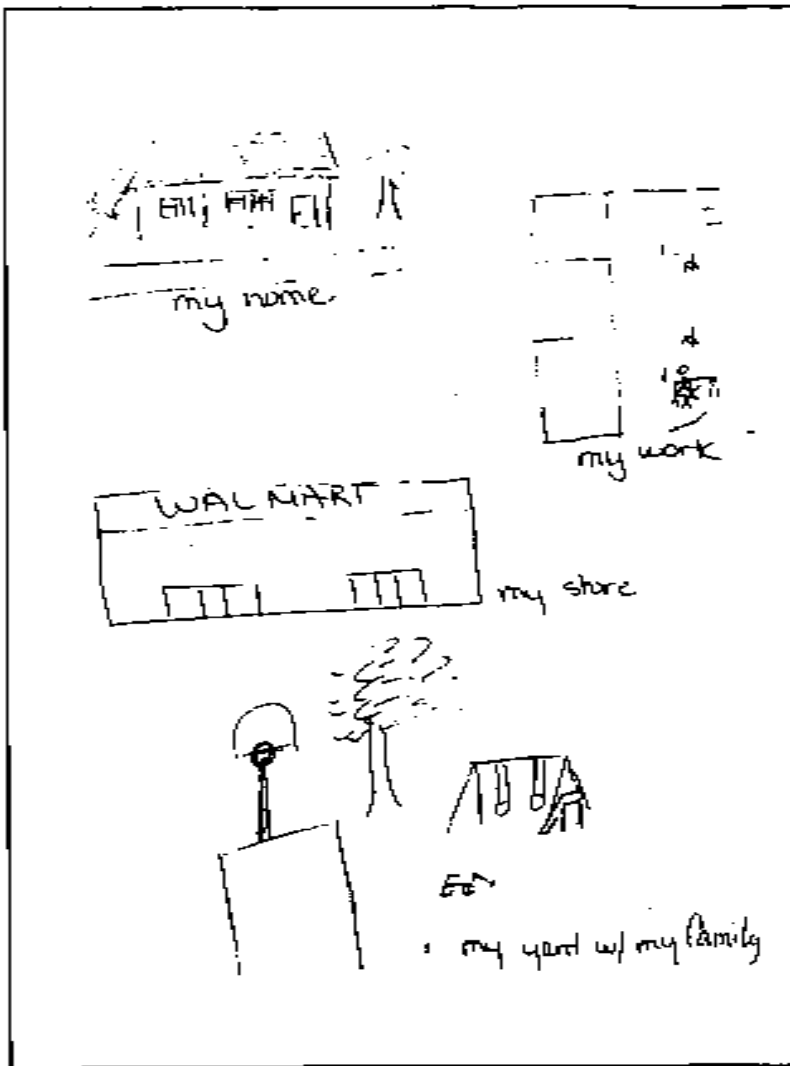 my home
my work
WALMART
my store
my yard w/ my family